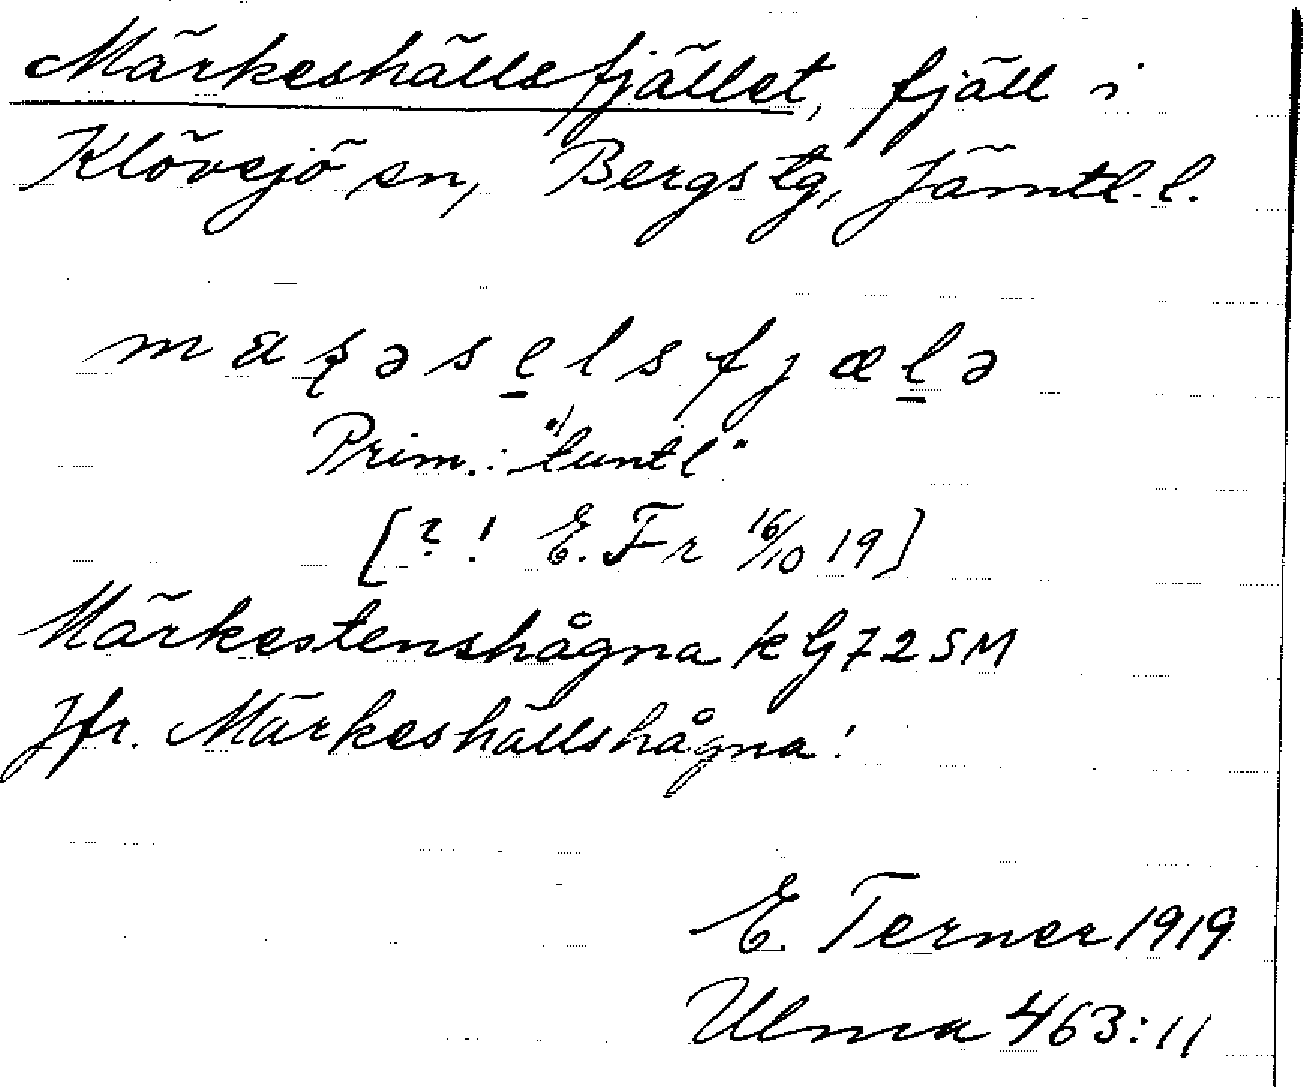 Märkeshällsfjället, fjäll i
Klövsjö sn, Bergs tg, Jämtl. l.
Prim.: "tuntl"
[?! E. Fr 16/10 19]
Märkestenshågna kG 72 SM
Jfr. Märkeshällshågna!
E. Terner 1919
Ulma 463:11